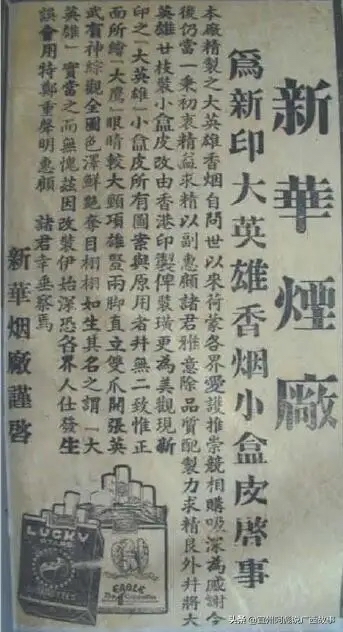 新華煙廠
為新印大英雄香烟小盒皮啓事
本廠精製之大英雄香烟自問世以來荷蒙各界愛護推崇競相購吸深為感謝今
後仍當一秉初衷精益求精以副惠顧諸君雅意除品質配製力求精良外并將大
英雄廿枝裝小盒皮改由香港印製俾裝璜更為美觀現新
印之「大英雄」小盒皮所有圖案與原用者并無二致惟正
面所繪「大鷹」眼睛較大頸項雄豎兩脚直立雙爪開張英
武賀神綜觀全圖色澤鮮艷奪目栩栩如生其名之謂「大
英雄」實當之而無愧茲因改裝伊始深恐各界人仕發生
誤會用特鄭重聲明惠顧 諸君幸垂察焉
新華烟廠謹啓
LUCKY
EAGLE
头条 @宜州阿彪说广西故事